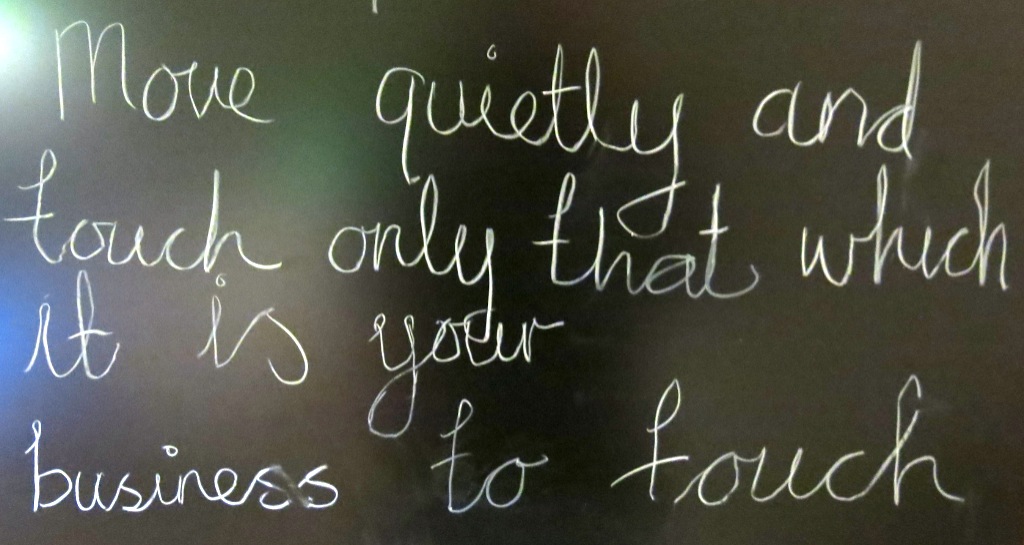 Move quietly and
touch only that which
it is your
business to touch